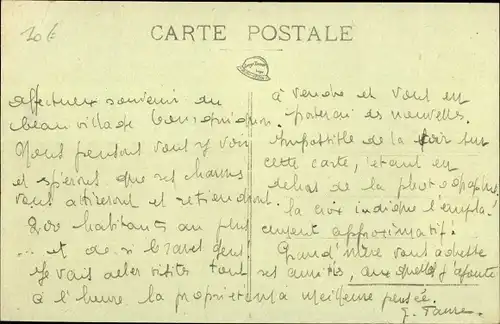 10 €
CARTE POSTALE
Affectueux souvenir du
beau village
Nous pensons vous y voir
et espérons que ses charmes
vous attireront et retiendront.
200 habitants au plus
... et de si braves gens.
Je vais aller visiter tout
à l'heure la propriété
à vendre et vous en
porterai des nouvelles.
Impossible de la voir sur
cette carte, étant en
dehors de la photographie
la croix indique l'empla-
cement approximatif.
Grand'mère vous adresse
ses amitiés, auxquelles j'ajoute
meilleure pensée.